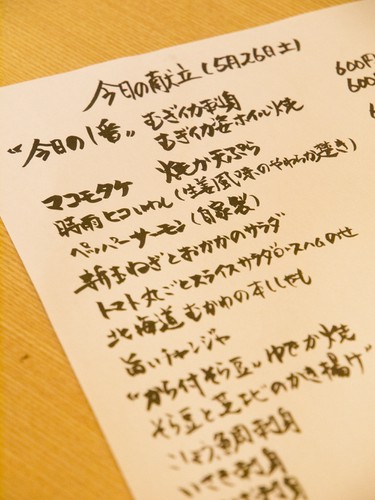 今日の献立(5月26日土)
"今日の1番" むぎイカ刺身 600円
むぎイカ姿ホイル焼 600
マコモタケ 焼か天ぷら
時雨ヒコいわし(生姜風味のやわらか煮き)
ペッパーサーモン(自家製)
新玉ねぎとおかかのサラダ
トマト丸ごとスライスサラダ 生ハムのせ
北海道むかわの本ししゃも
旨いチャンジャ
"から付そら豆" ゆでか焼
そら豆と芝エビのかき揚げ
こしょう鯛刺身
いさき刺身
刺身